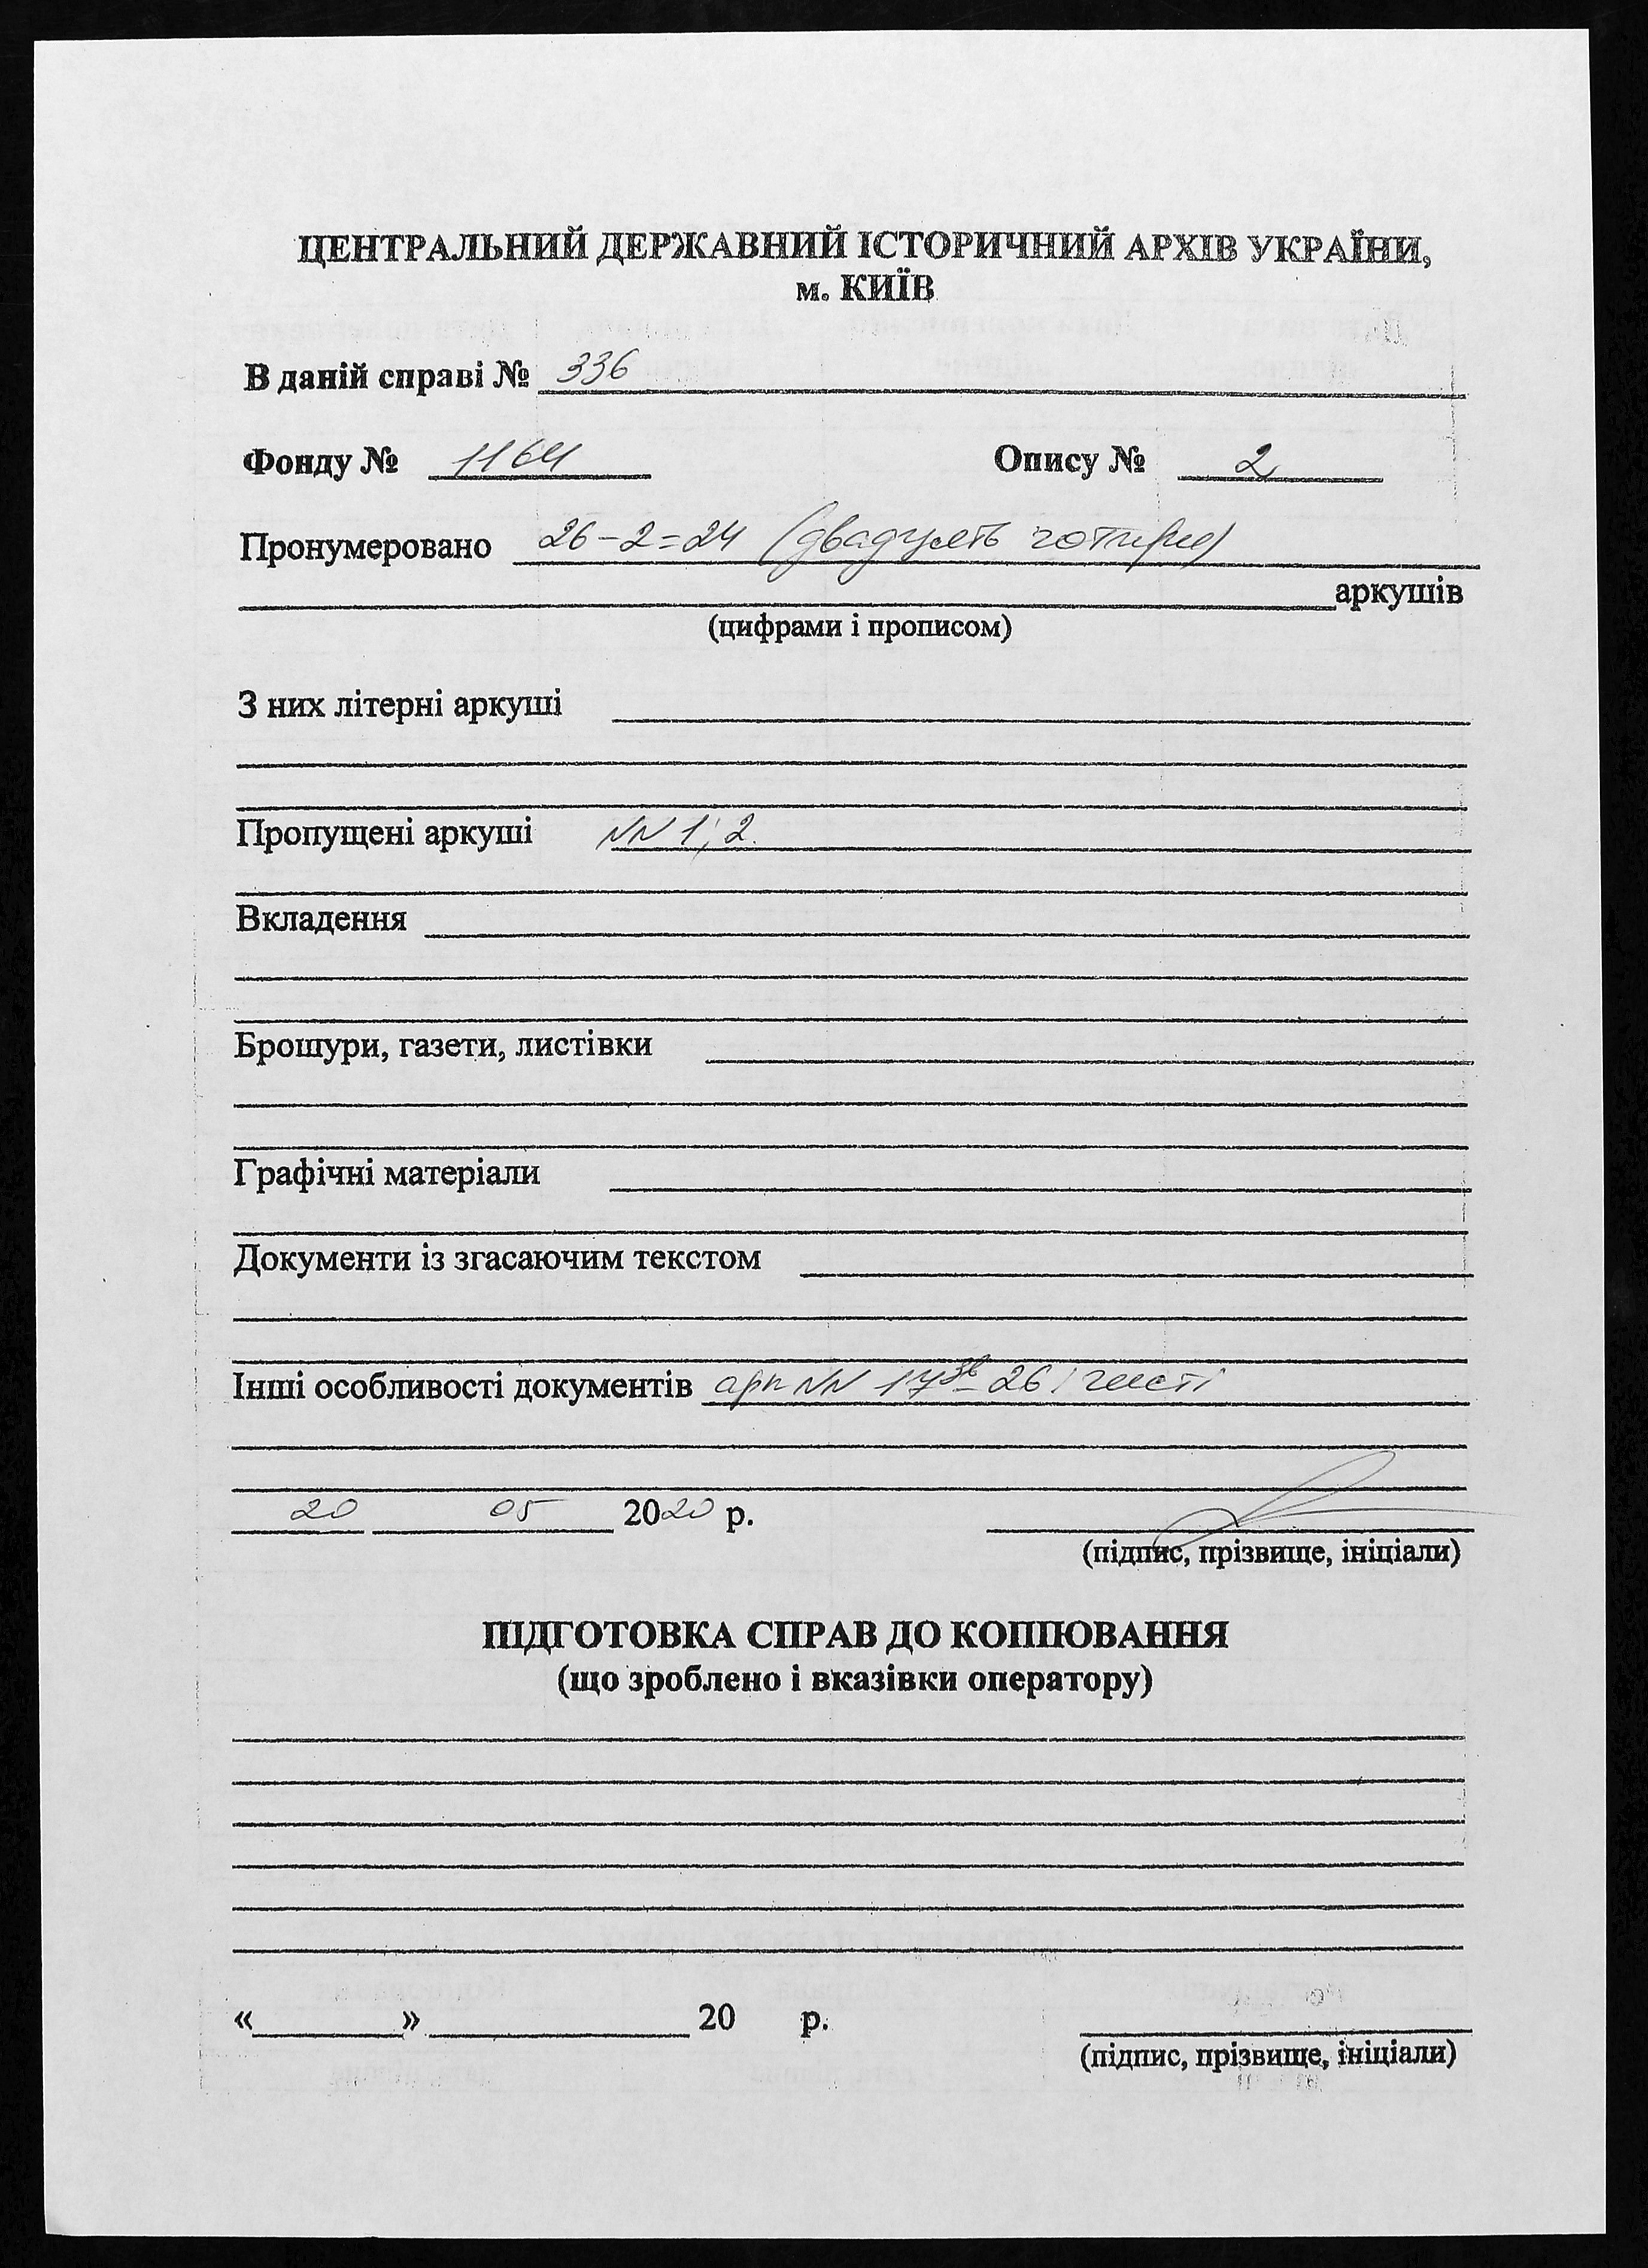 ЦЕНТРАЛЬНИЙ ДЕРЖАВНИЙ ІСТОРИЧНИЙ АРХІВ УКРАЇНИ,
м. КИЇВ
В даній справі № 336
Фонду № 1164 Опису № 2
Пронумеровано 26-2=24 (двадцять чотири)
аркушів
(цифрами і прописом)
З них літерні аркуші
Пропущені аркуші NN 1; 2.
Вкладення
Брошури, газети, листівки
Графічні матеріали
Документи із згасаючим текстом
Інші особливості документів арк NN 17зв - 26 чисті
20 05 2020 р.
(підпис, прізвище, ініціали)
ПІДГОТОВКА СПРАВ ДО КОПІЮВАННЯ
(що зроблено і вказівки оператору)
« » 20 р.
(підпис, прізвище, ініціали)